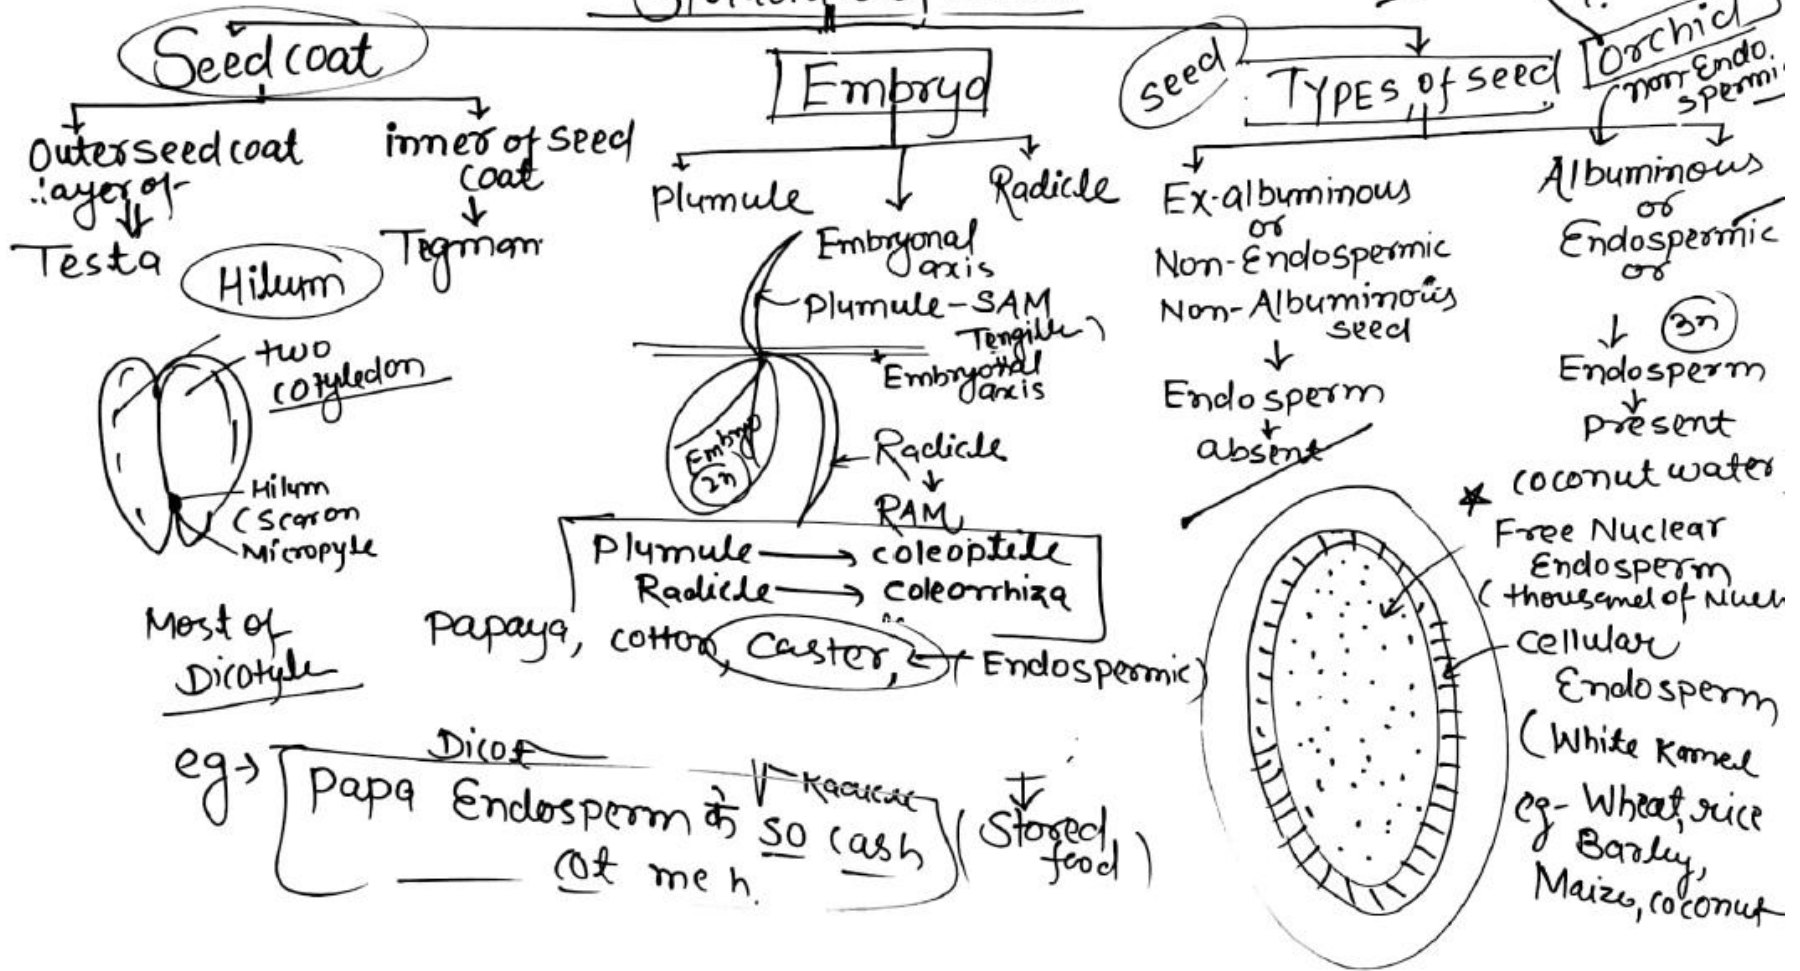 Seed coat
Outer seed coat
layer of
Testa
inner of seed
coat
Tegman
Hilum
two
cotyledon
Hilum
(Scar on
Micropyle
Most of
Dicotyle
Embryo
Plumule
Radicle
Embryonal
axis
Plumule - SAM
Embryonal
axis
Embryo
2n
Radicle
RAM
Plumule → coleoptile
Radicle → coleorrhiza
Papaya, cotton, Caster, ← (Endospermic)
eg→
Dicot
Papa Endosperm so cash
Cot me h.
(Stored
food)
seed
TYPES of seed
Orchid
non-Endo.
spermi
Ex-albuminous
or
Non-Endospermic
Non-Albuminous
seed
Endosperm
absent
Albuminous
or
Endospermic
or
3n
Endosperm
present
coconut water
★ Free Nuclear
Endosperm
(thousand of Nucl
cellular
Endosperm
(White Karnel
eg- Wheat, rice
Barley,
Maize, coconut